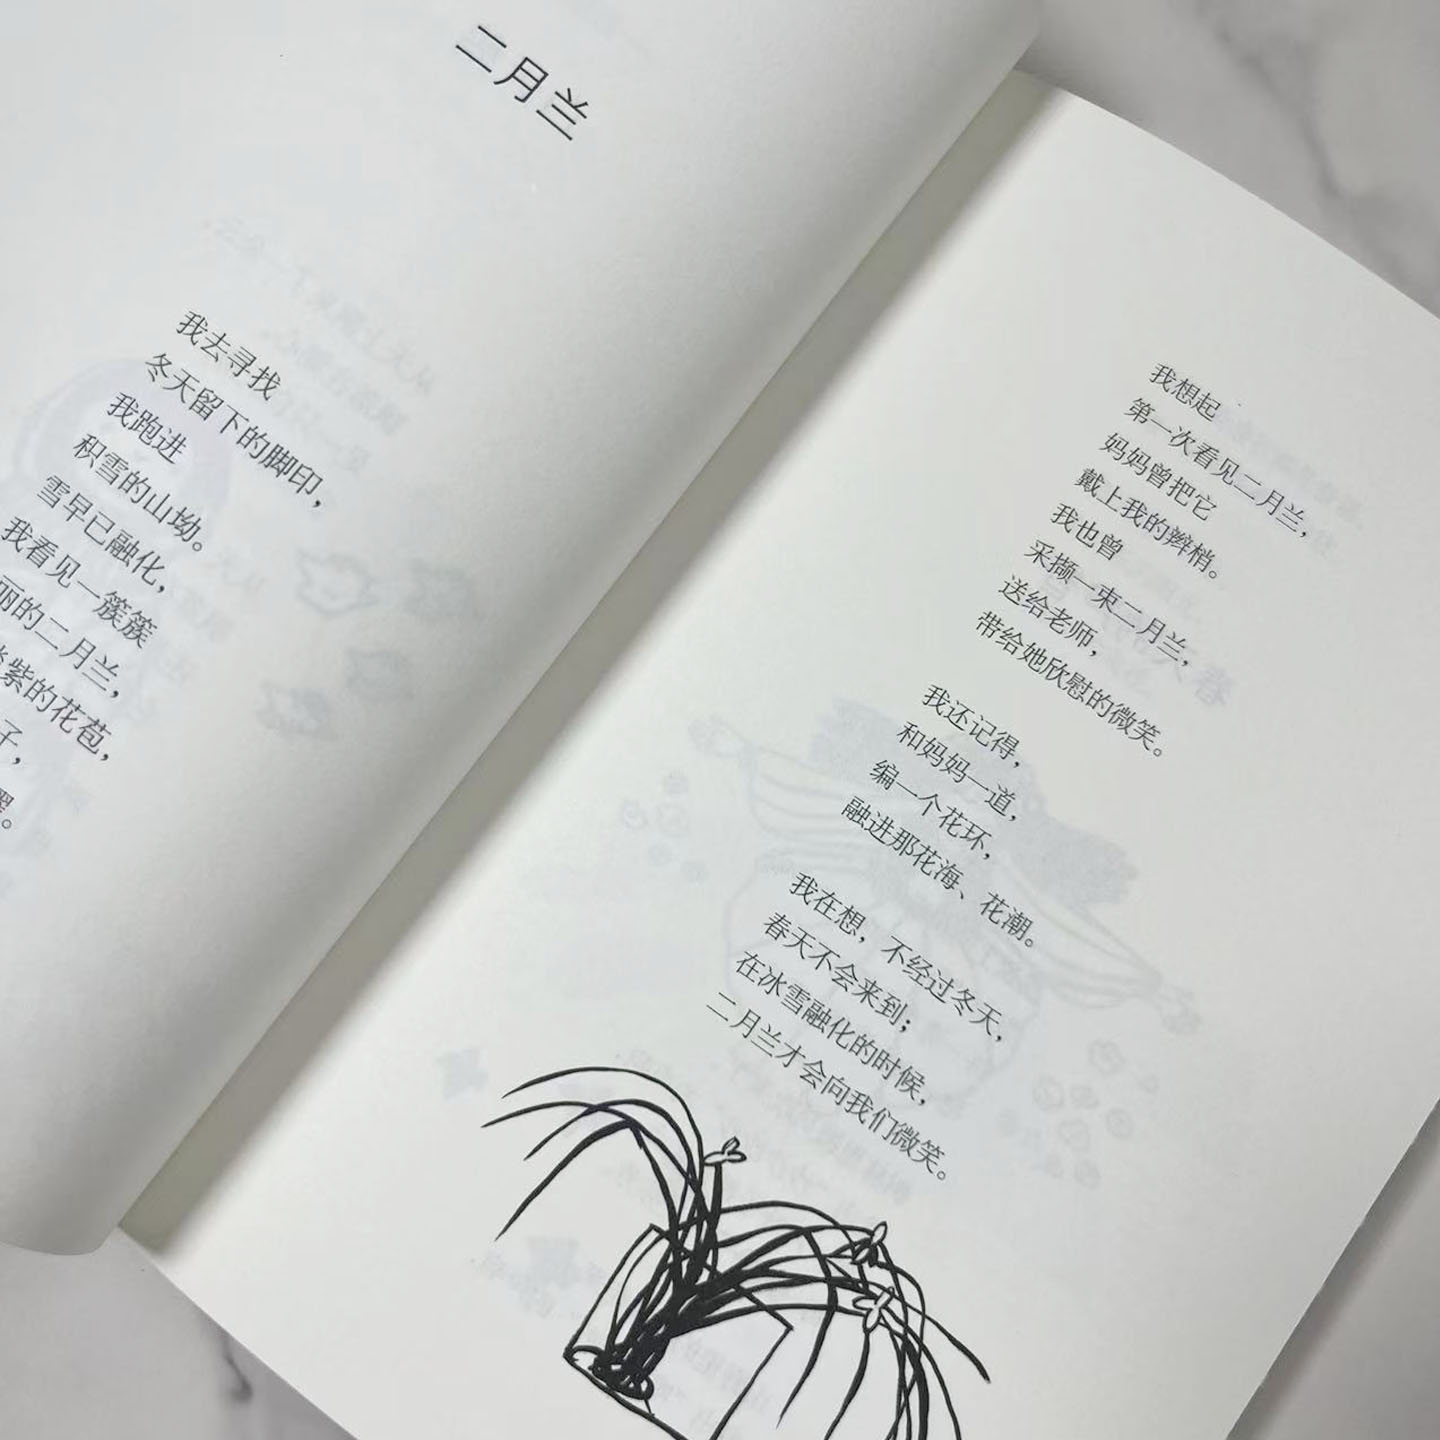 二月兰
我去寻找
冬天留下的脚印，
我跑进
积雪的山坳。
雪早已融化，
我看见一簇簇
丽的二月兰，
紫的花苞，
子，
耀。
我想起
第一次看见二月兰，
妈妈曾把它
戴上我的辫梢。
我也曾
采撷一束二月兰，
送给老师，
带给她欣慰的微笑。
我还记得，
和妈妈一道，
编一个花环，
融进那花海、花潮。
我在想，不经过冬天，
春天不会来到；
在冰雪融化的时候，
二月兰才会向我们微笑。